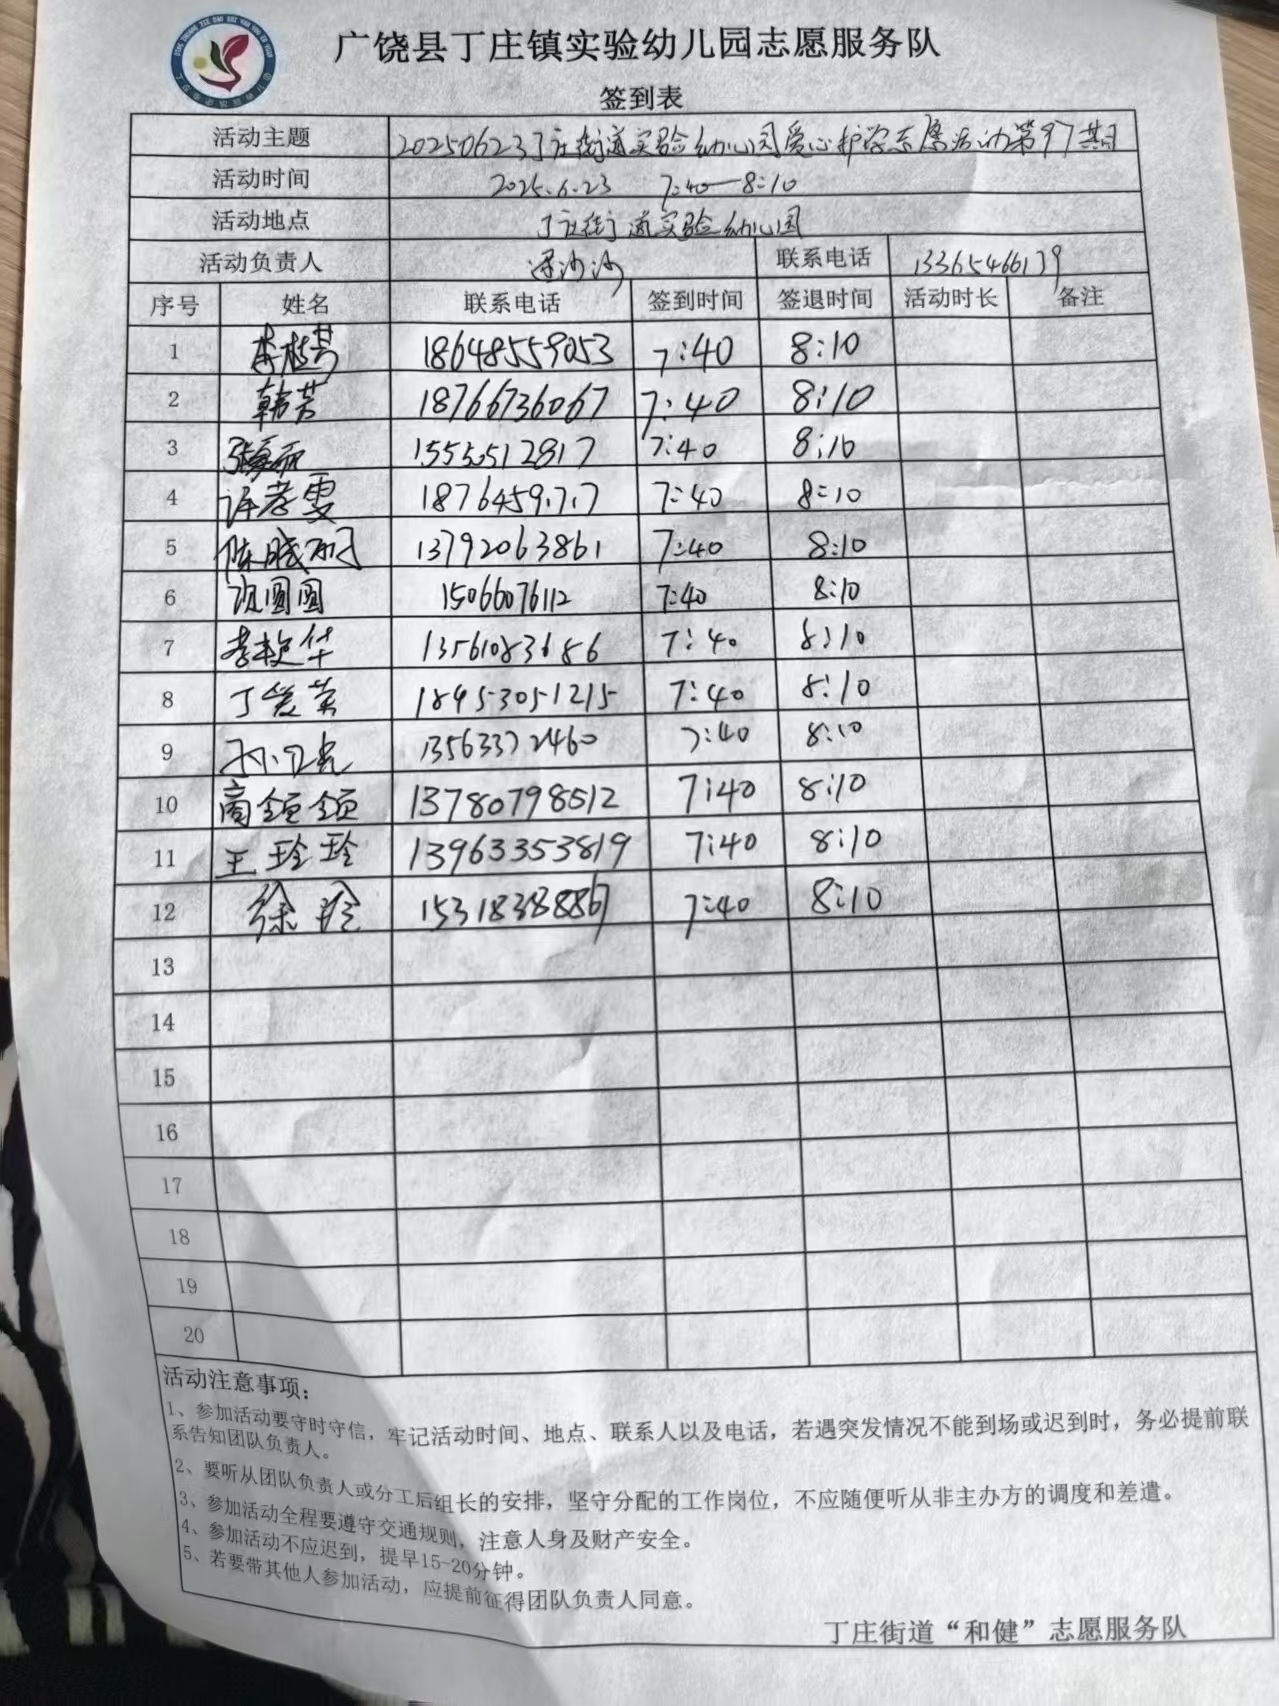 广饶县丁庄镇实验幼儿园志愿服务队
签到表
活动主题 20250623丁庄街道实验幼儿园爱心护学志愿活动第97期
活动时间 2025.6.23 7:40-8:10
活动地点 丁庄街道实验幼儿园
活动负责人 梁沙沙 联系电话 13365466179
序号 姓名 联系电话 签到时间 签退时间 活动时长 备注
1 18648559053 7:40 8:10
2 韩芳 18766736067 7:40 8:10
3 15550512817 7:40 8:10
4 许孝雯 7:40 8:10
5 陈晓丽 13792063861 7:40 8:10
6 圆圆 15066076112 7:40 8:10
7 李艳华 13561083686 7:40 8:10
8 丁爱英 18953051215 7:40 8:10
9 13563372460 7:40 8:10
10 商领领 13780798512 7:40 8:10
11 王玲玲 13963353819 7:40 8:10
12 徐玲 15318388867 7:40 8:10
13
14
15
16
17
18
19
20
活动注意事项：
1、参加活动要守时守信，牢记活动时间、地点、联系人以及电话，若遇突发情况不能到场或迟到时，务必提前联
系告知团队负责人。
2、要听从团队负责人或分工后组长的安排，坚守分配的工作岗位，不应随便听从非主办方的调度和差遣。
3、参加活动全程要遵守交通规则，注意人身及财产安全。
4、参加活动不应迟到，提早15-20分钟。
5、若要带其他人参加活动，应提前征得团队负责人同意。
丁庄街道“和健”志愿服务队